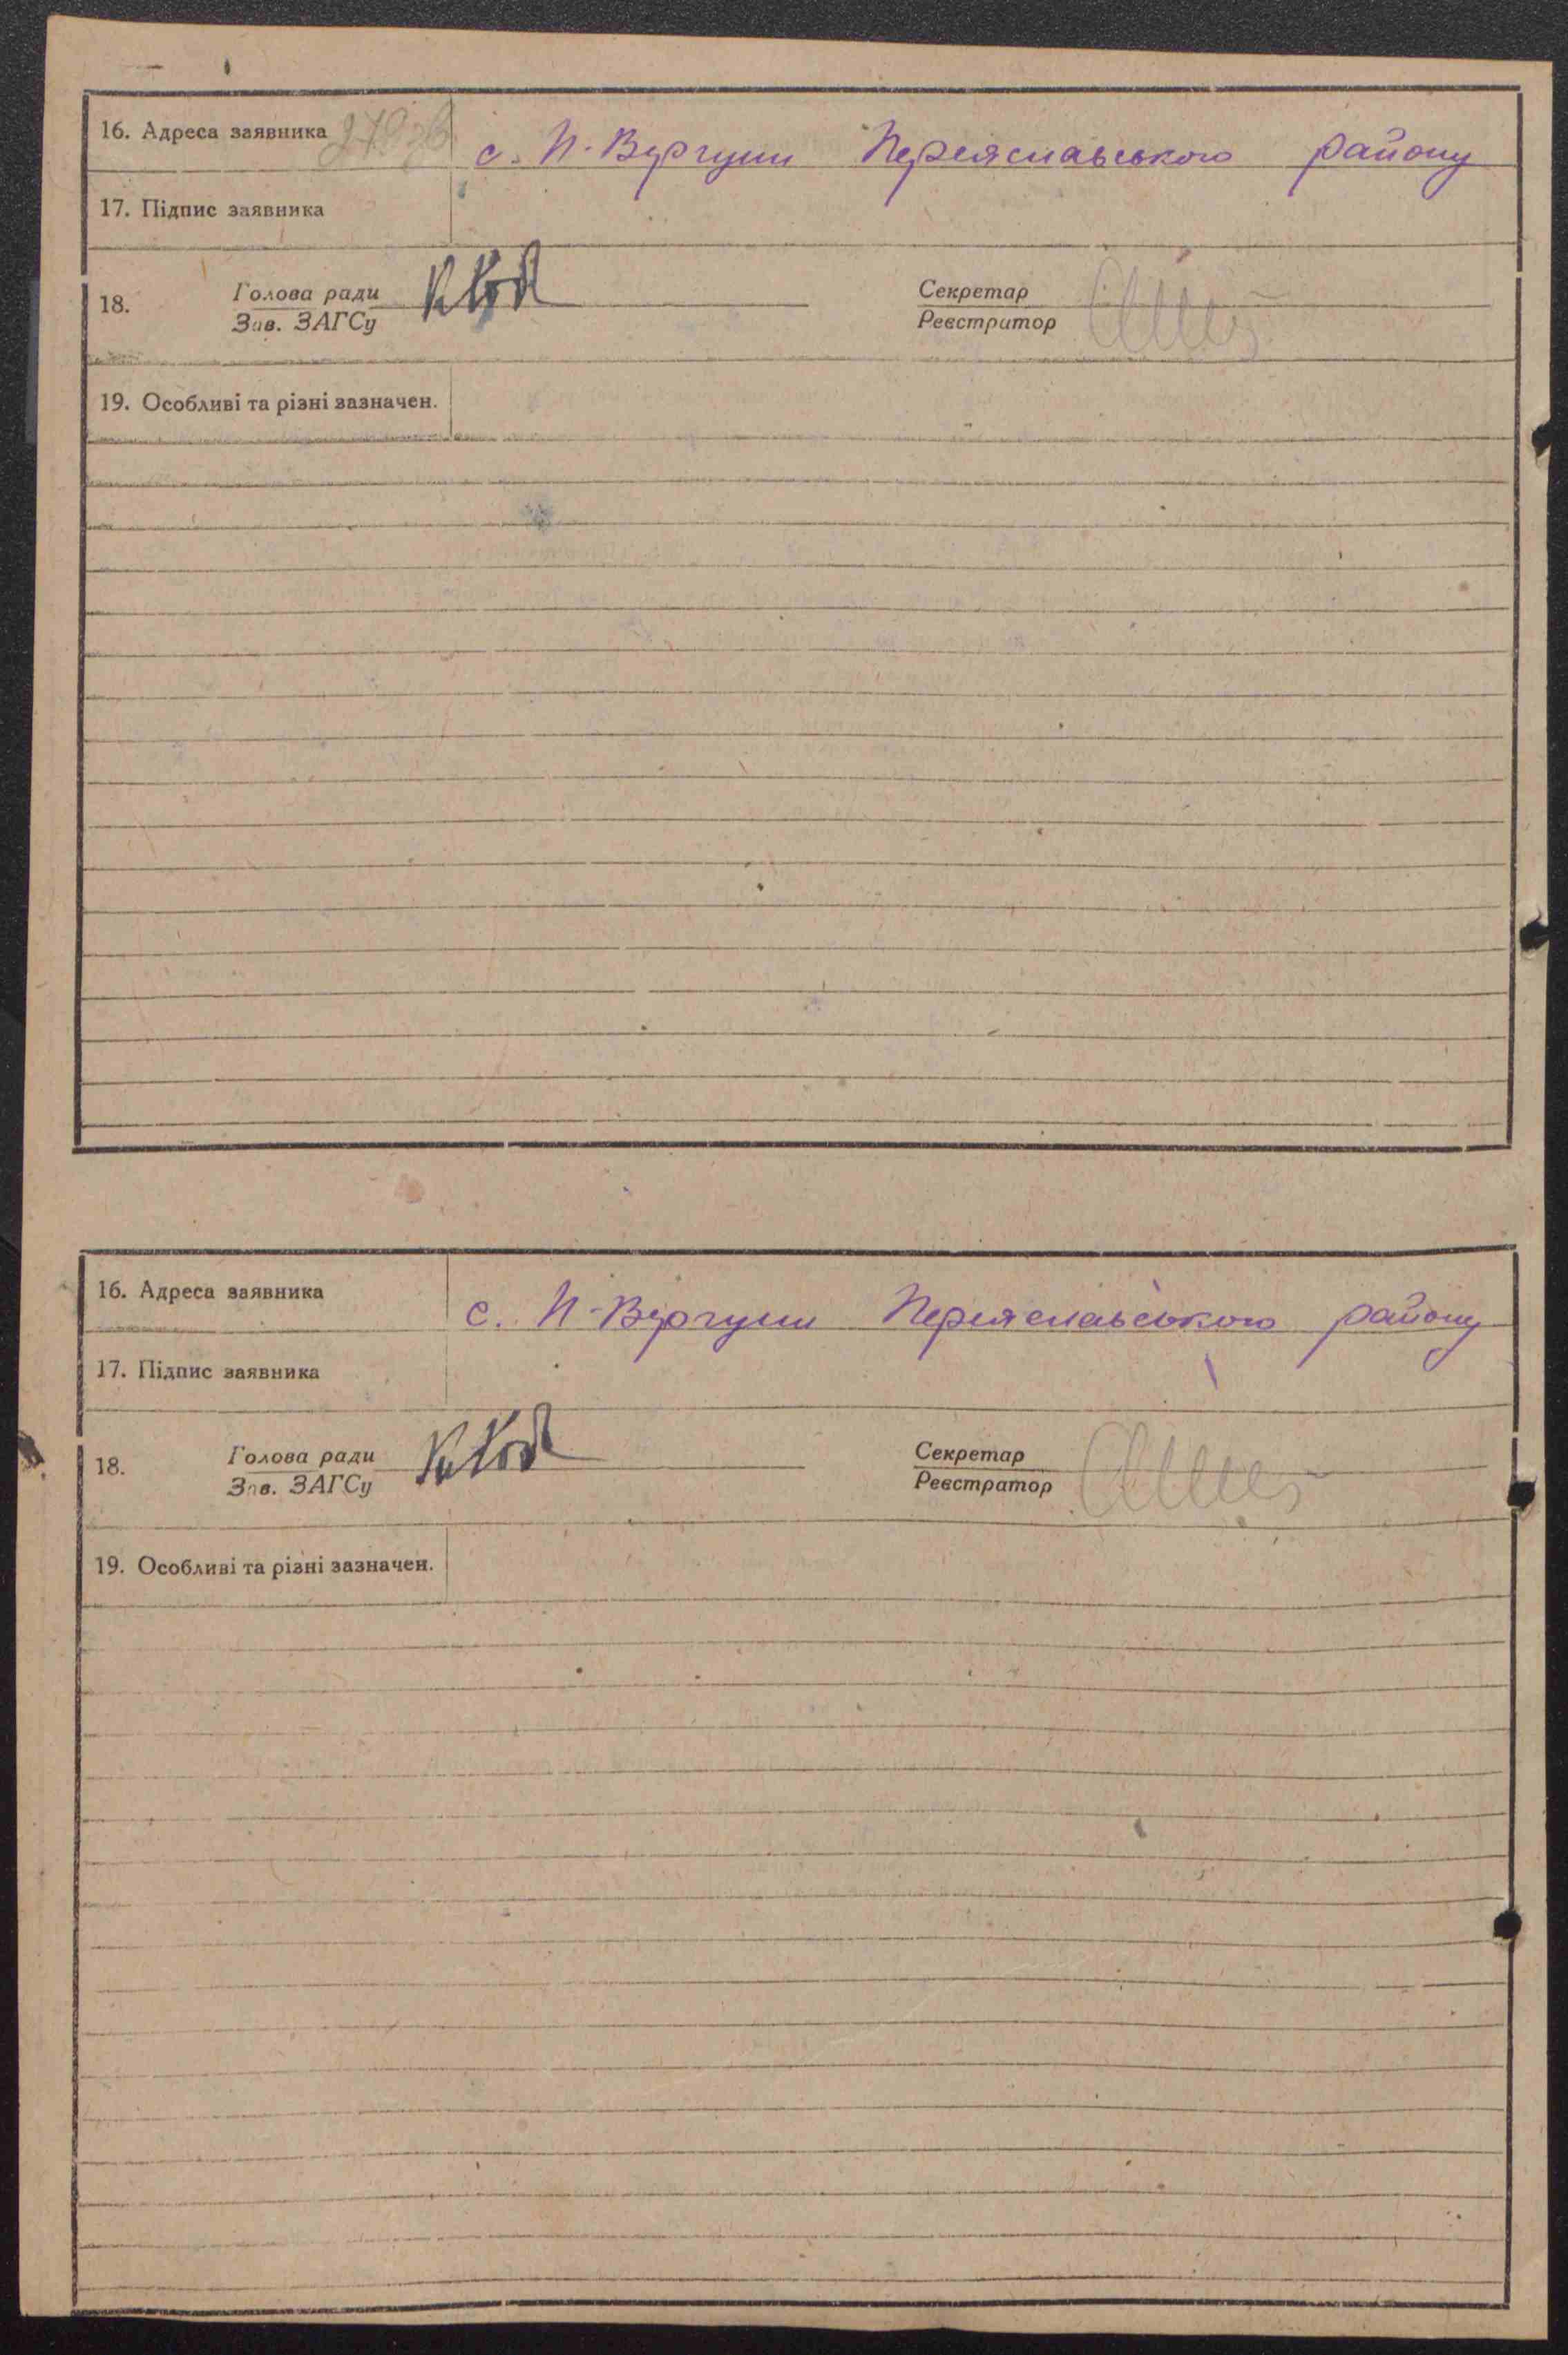 16. Адреса заявника с. П-Вергуни Переяславського району
17. Підпис заявника
18. Голова ради Секретар
Зав. ЗАГСу Реєстратор
19. Особливі та різні зазначен.
16. Адреса заявника с. П-Вергуни Переяславського району
17. Підпис заявника
18. Голова ради Секретар
Зав. ЗАГСу Реєстратор
19. Особливі та різні зазначен.